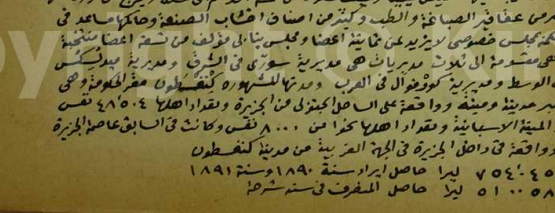 من عقاقير الصباغة والطب وكثير من اصناف اخشاب الصنعة وحاكمها مساعد في
بمجلس خصوصي لا يزيد عن ثمانية أعضا ومجلس نيابي مؤلف من تسعة اعضا منتخبة
مقسومة الى ثلاث مديريات هي مديرية سوري في الشرق ومديرية ميدلسكس
الوسط ومديرية كورنوال في الغرب ومدنها المشهورة كنغسطون مقر الحكومة وهي
مدينة ومينة وواقعة على الساحل الجنوبي من الجزيرة وتعداد اهلها ٤٨٥٠٤ نفس
المدينة الاسبانية وتعداد اهلها نحوا من ٨٠٠٠ نفس وكانت في السابق عاصمة الجزيرة
وواقعة في داخل الجزيرة في الجهة الغربية من مدينة كنغسطون
ليرا حاصل ايراد سنة ١٨٩٠ وسنة ١٨٩١
ليرا حاصل المنصرف في سنه شرحه